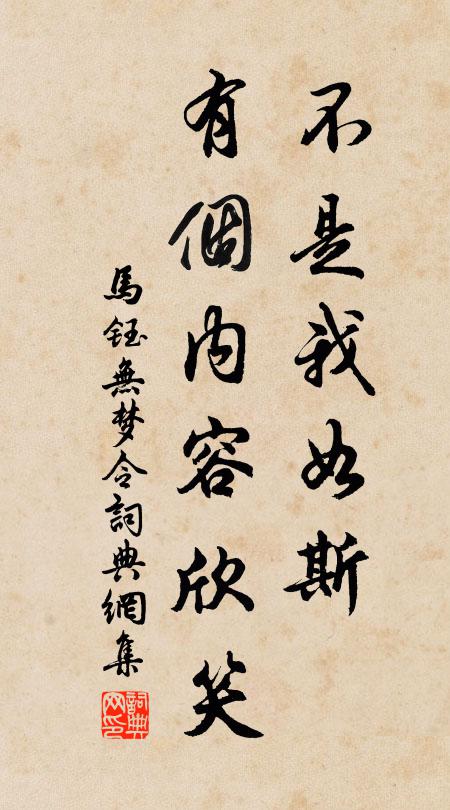 不是我如斯
有個內容欣笑
馬鈺無梦令詞典網集
詞典网印